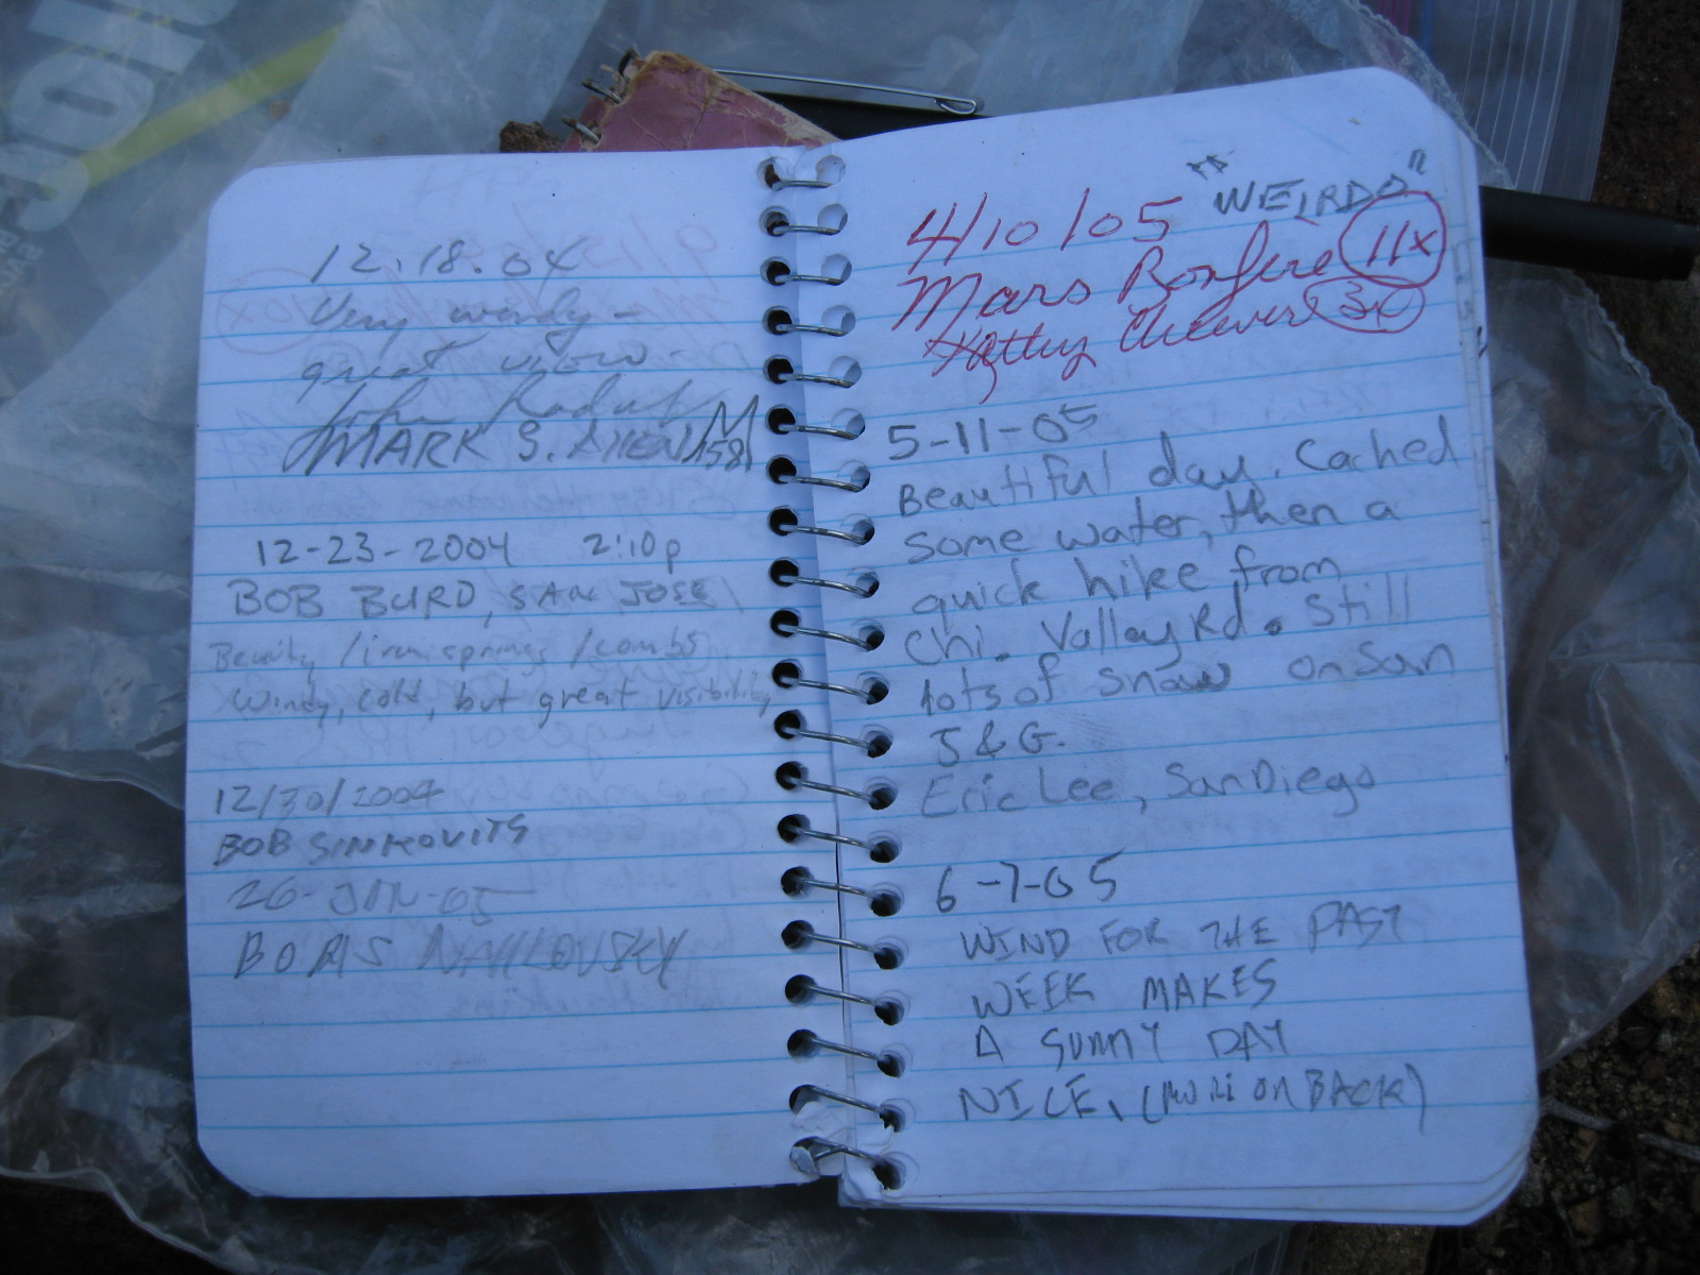 12.18.04
Very windy -
great view -
John
MARK S. Allen M
158
12-23-2004 2:10p
BOB BURD, SAN JOSE
/ironsprings /combs
Windy, cold, but great visibility
12/30/2004
BOB SINKOVITS
26-JAN-05
BORIS
"WEIRDO"
4/10/05
Mars Bonfire 11x
Kathy Cheever 3x
5-11-05
Beautiful day. Cached
some water, then a
quick hike from
Chi. Valley Rd. Still
lots of snow on San
J & G.
Eric Lee, San Diego
6-7-05
WIND FOR THE PAST
WEEK MAKES
A SUNNY DAY
NICE. (MORE ON BACK)